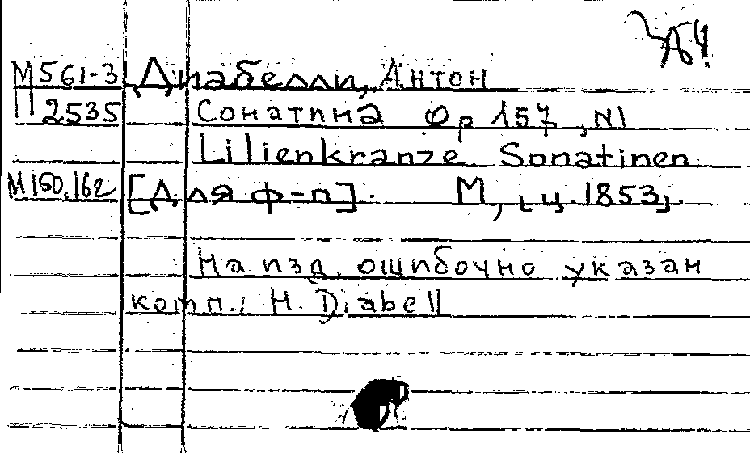 М561-3 Диабелли, Антон
П2535 Сонатина Op 157, N1
Lilienkranze Sonatinen
М150.162 [Для ф-п]. М, [ц.1853].
На изд. ошибочно указан
комп.: H. Diabell